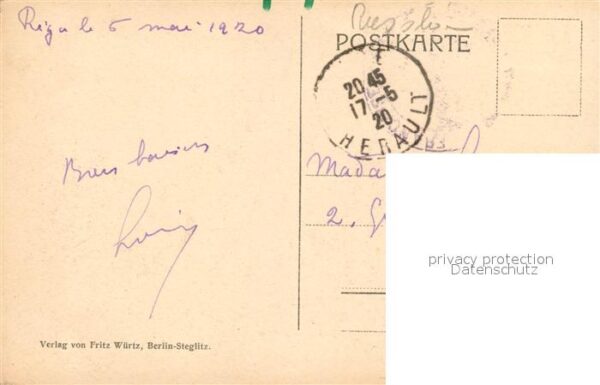 Riga le 5 mai 1920
POSTKARTE
20 45
17 - 5
20
HERAULT
Bons baisers
Mada
2, G
privacy protection
Datenschutz
Verlag von Fritz Würtz, Berlin-Steglitz.